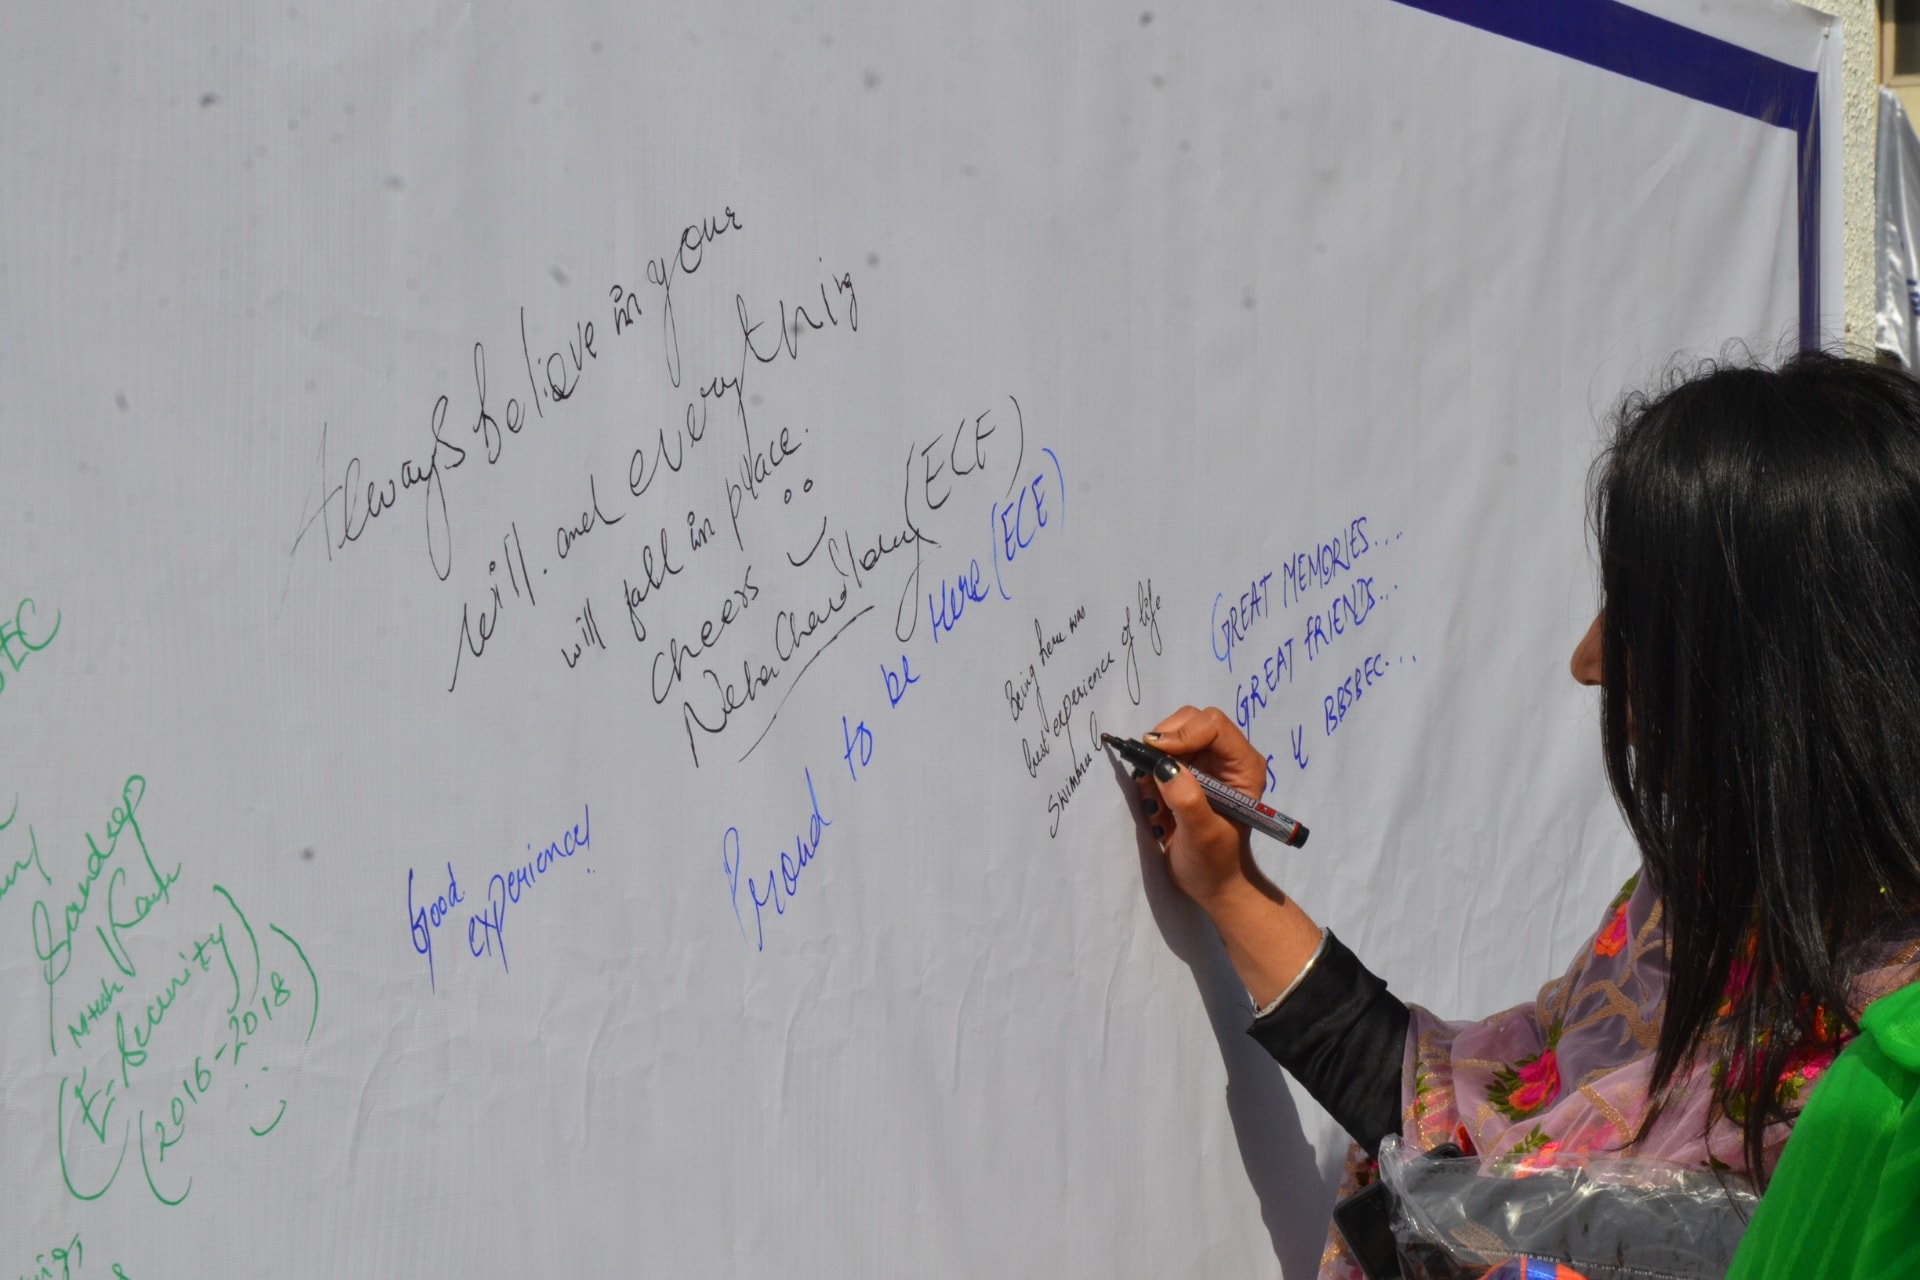 Always believe in your
will. and everything
will fall in place.
cheers
Neha Chaudhary (ECE)
Proud to be Here (ECE)
Good
experience!
Being here was
best experience of life
GREAT MEMORIES....
GREAT FRIENDS...
BBSBEC....
Permanent
Sandeep
Kaur
Mtech
(E-Security)
(2016-2018)